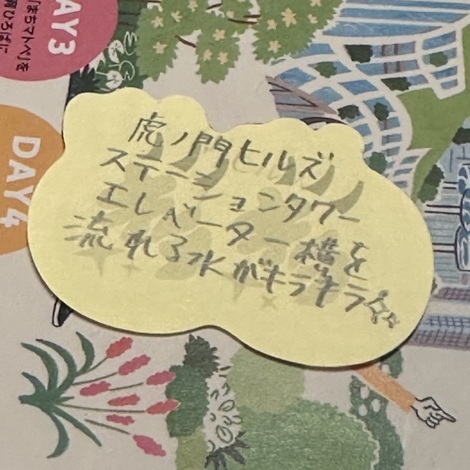 DAY3
DAY4
虎ノ門ヒルズ
ステーションタワー
エレベーター横を
流れる水がキラキラ